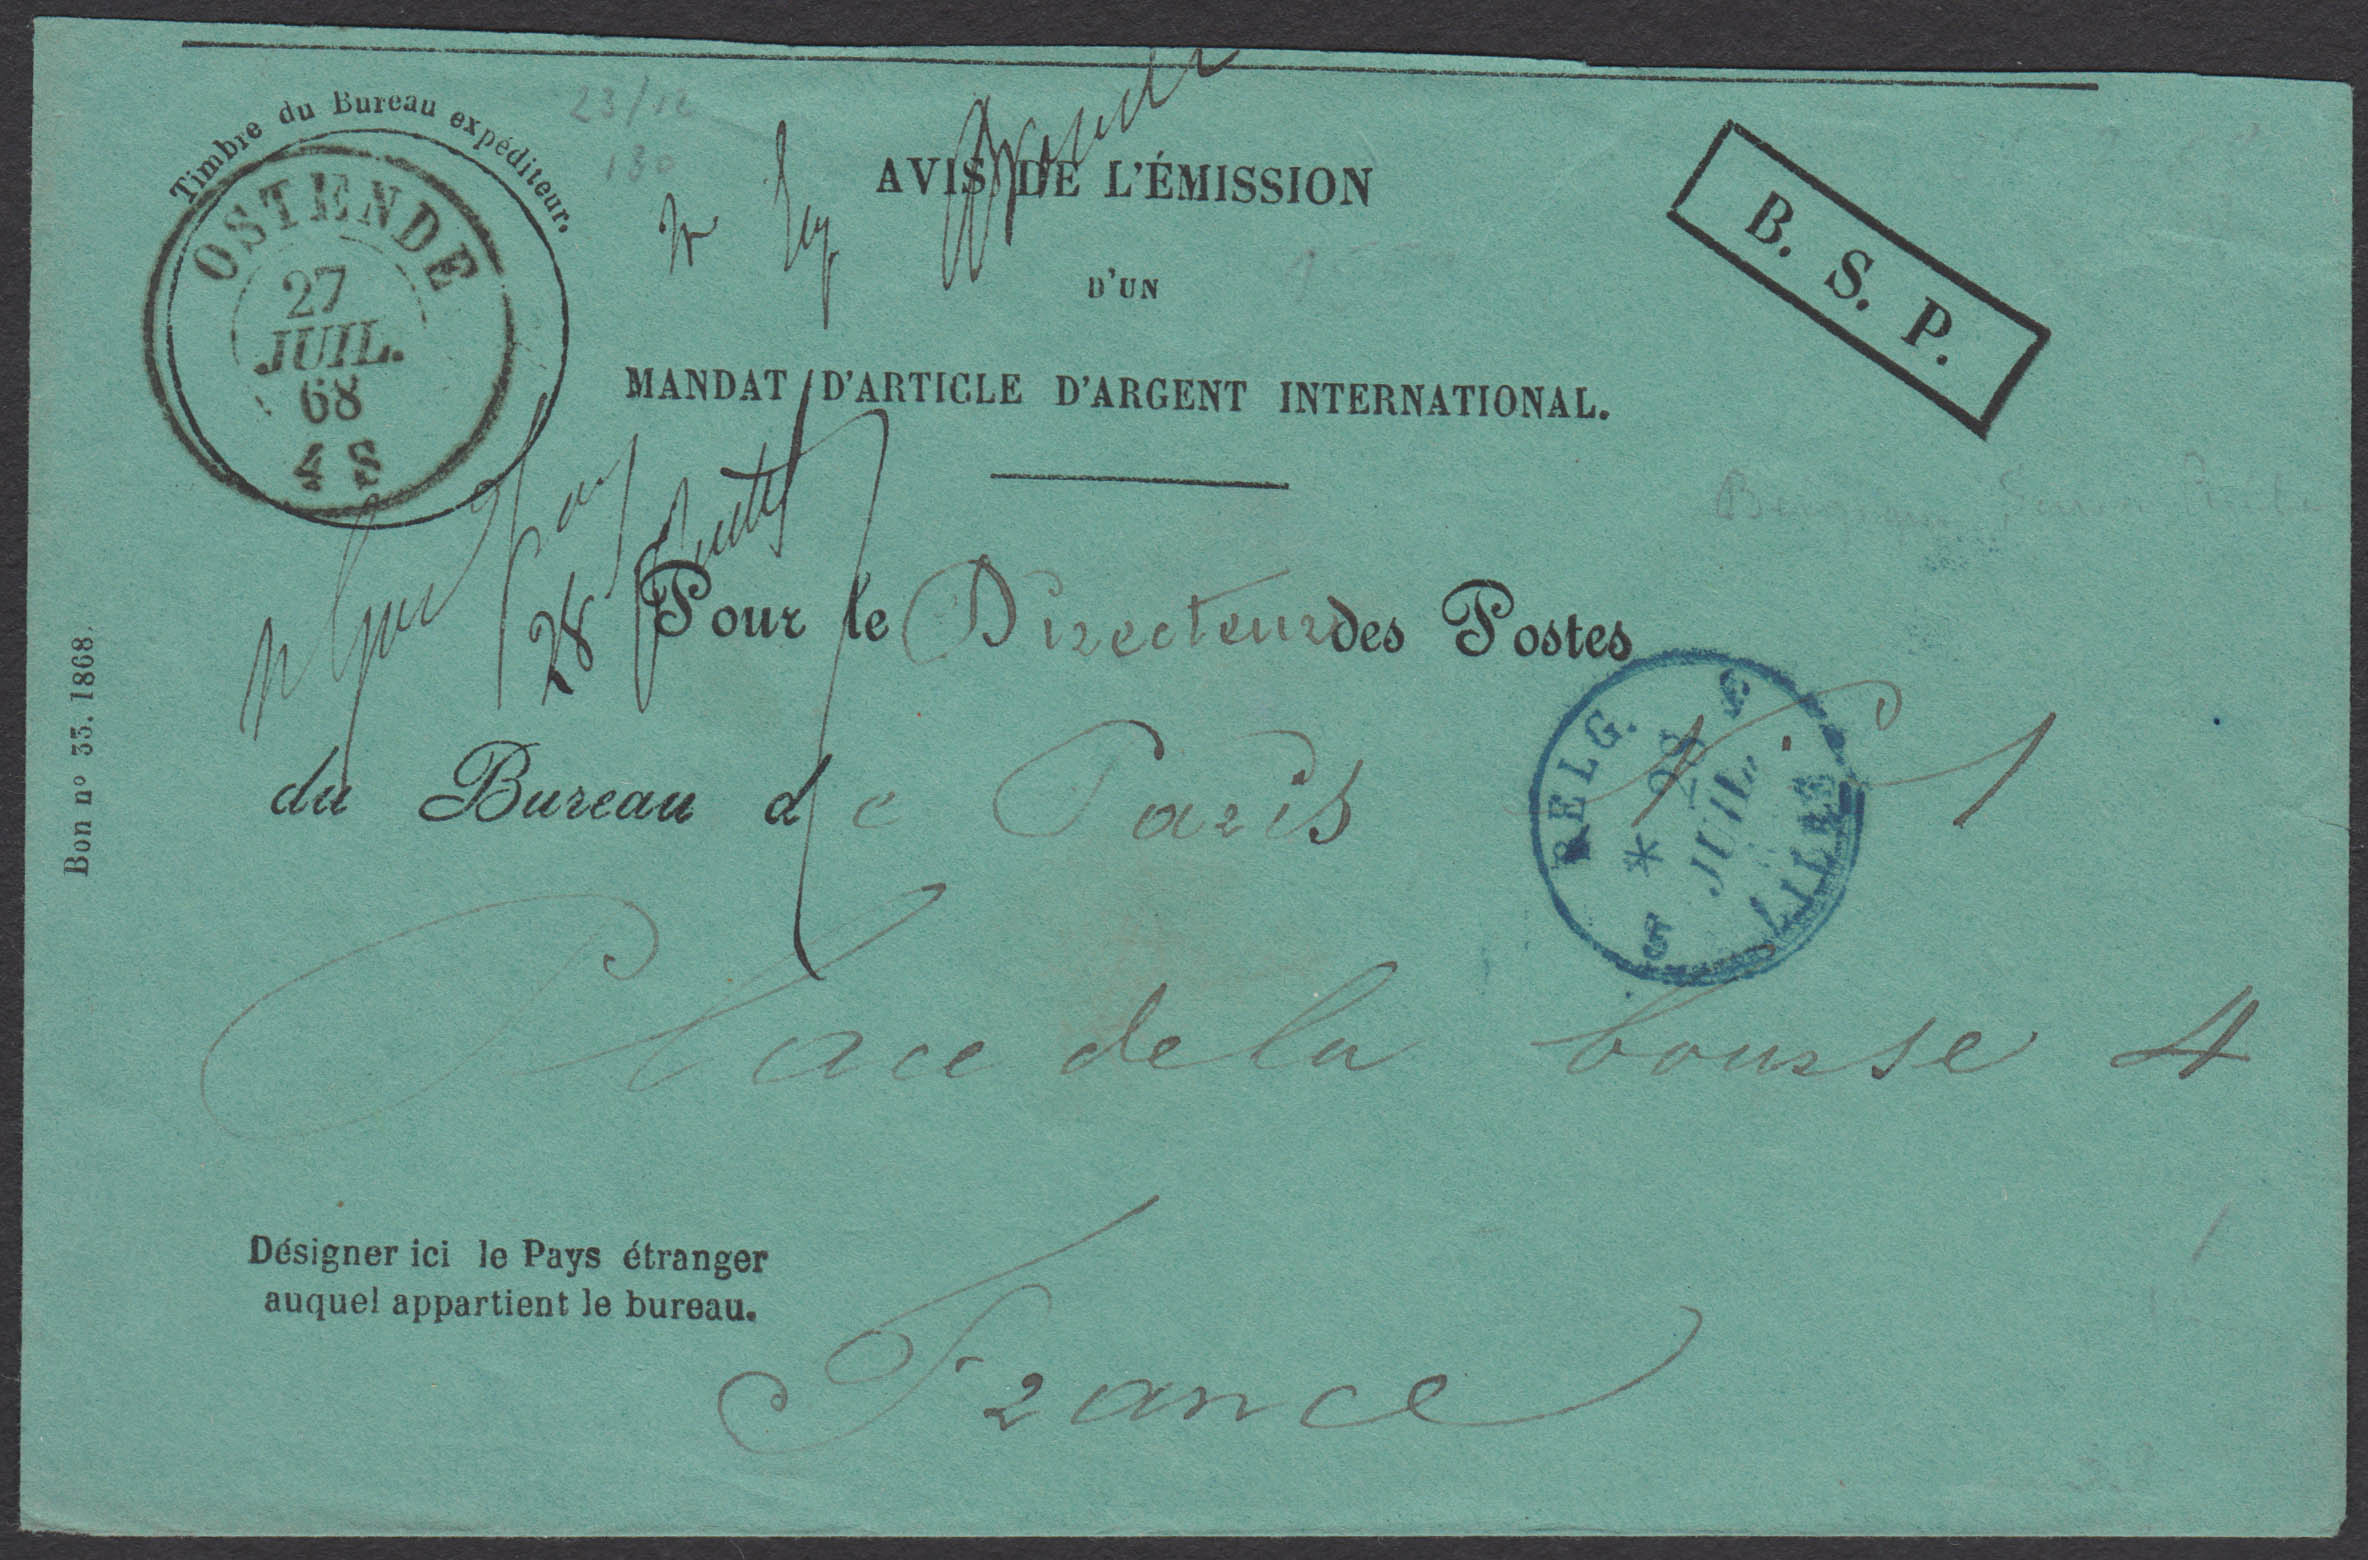 Timbre du Bureau expéditeur.
OSTENDE
27
JUIL.
68
4 S
23/12
130
AVIS DE L'ÉMISSION
D'UN
MANDAT D'ARTICLE D'ARGENT INTERNATIONAL.
B. S. P.
28
Pour le Directeur des Postes
du Bureau de Paris
BELG.
28
JUIL.
LILLE
Place de la bourse 4
Désigner ici le Pays étranger
auquel appartient le bureau.
France
Bon nº 33. 1868.